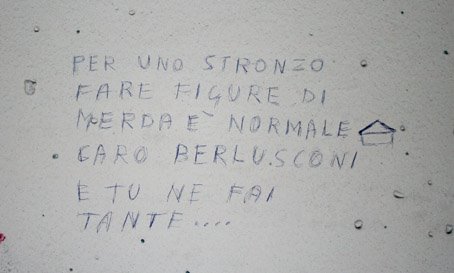 PER UNO STRONZO
FARE FIGURE DI
MERDA E' NORMALE
CARO BERLUSCONI
E TU NE FAI
TANTE....